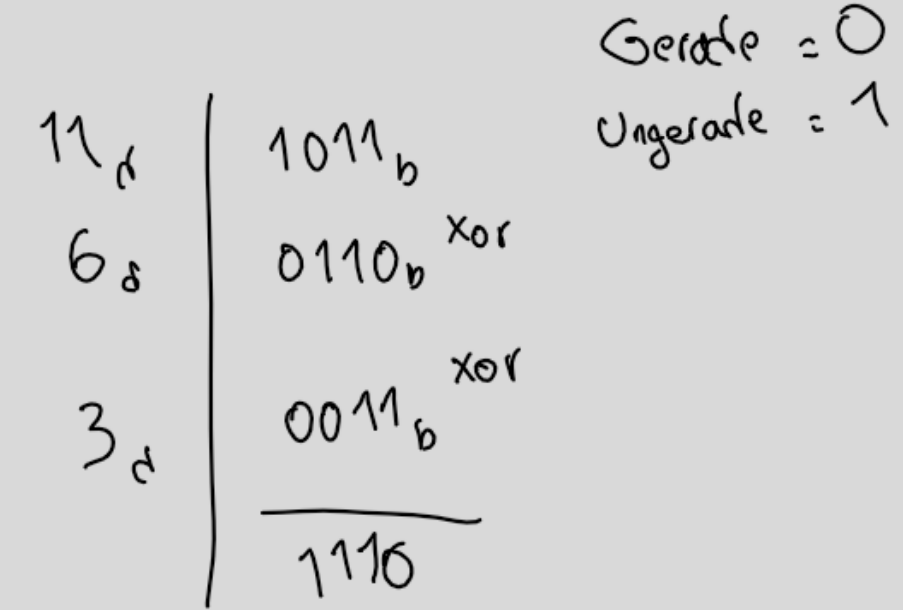 Gerade = 0
Ungerade = 1
11d 1011b
6d 0110b xor
3d 0011b xor
1110